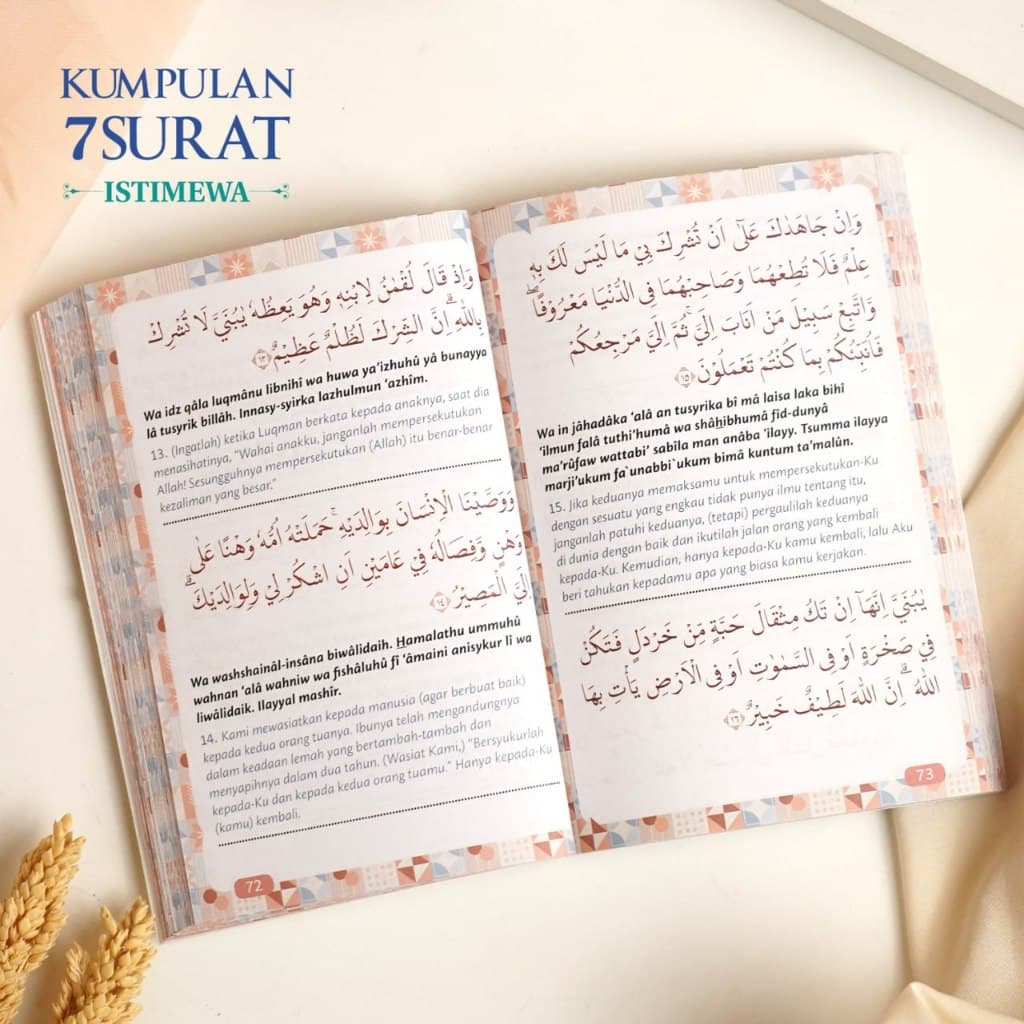 KUMPULAN
7SURAT
ISTIMEWA
وَاِذْ قَالَ لُقْمٰنُ لِابْنِهٖ وَهُوَ يَعِظُهٗ يٰبُنَيَّ لَا تُشْرِكْ
بِاللّٰهِ ۗاِنَّ الشِّرْكَ لَظُلْمٌ عَظِيْمٌ ١٣
Wa idz qâla luqmânu libnihî wa huwa ya’izhuhû yâ bunayya
lâ tusyrik billâh. Innasy-syirka lazhulmun ‘azhîm.
13. (Ingatlah) ketika Luqman berkata kepada anaknya, saat dia
menasihatinya, “Wahai anakku, janganlah mempersekutukan
Allah! Sesungguhnya mempersekutukan (Allah) itu benar-benar
kezaliman yang besar.”
وَوَصَّيْنَا الْاِنْسَانَ بِوَالِدَيْهِۚ حَمَلَتْهُ اُمُّهٗ وَهْنًا عَلٰى
وَهْنٍ وَّفِصَالُهٗ فِيْ عَامَيْنِ اَنِ اشْكُرْ لِيْ وَلِوَالِدَيْكَۗ
اِلَيَّ الْمَصِيْرُ ١٤
Wa washshainâl-insâna biwâlidaih. Hamalathu ummuhû
wahnan ‘alâ wahniw wa fishâluhû fî ‘âmaini anisykur lî wa
liwâlidaik. Ilayyal mashîr.
14. Kami mewasiatkan kepada manusia (agar berbuat baik)
kepada kedua orang tuanya. Ibunya telah mengandungnya
dalam keadaan lemah yang bertambah-tambah dan
menyapihnya dalam dua tahun. (Wasiat Kami,) “Bersyukurlah
kepada-Ku dan kepada kedua orang tuamu.” Hanya kepada-Ku
(kamu) kembali.
72
وَاِنْ جَاهَدٰكَ عَلٰٓى اَنْ تُشْرِكَ بِيْ مَا لَيْسَ لَكَ بِهٖ
عِلْمٌ فَلَا تُطِعْهُمَا وَصَاحِبْهُمَا فِى الدُّنْيَا مَعْرُوْفًا ۖ
وَّاتَّبِعْ سَبِيْلَ مَنْ اَنَابَ اِلَيَّۚ ثُمَّ اِلَيَّ مَرْجِعُكُمْ
فَاُنَبِّئُكُمْ بِمَا كُنْتُمْ تَعْمَلُوْنَ ١٥
Wa in jâhadâka ‘alâ an tusyrika bî mâ laisa laka bihî
‘ilmun falâ tuthi‘humâ wa shâhibhumâ fid-dunyâ
ma‘rûfaw wattabi‘ sabîla man anâba ‘ilayy. Tsumma ilayya
marji‘ukum fa`unabbi`ukum bimâ kuntum ta‘malûn.
15. Jika keduanya memaksamu untuk mempersekutukan-Ku
dengan sesuatu yang engkau tidak punya ilmu tentang itu,
janganlah patuhi keduanya, (tetapi) pergaulilah keduanya
di dunia dengan baik dan ikutilah jalan orang yang kembali
kepada-Ku. Kemudian, hanya kepada-Ku kamu kembali, lalu Aku
beri tahukan kepadamu apa yang biasa kamu kerjakan.
يٰبُنَيَّ اِنَّهَآ اِنْ تَكُ مِثْقَالَ حَبَّةٍ مِّنْ خَرْدَلٍ فَتَكُنْ
فِيْ صَخْرَةٍ اَوْ فِى السَّمٰوٰتِ اَوْ فِى الْاَرْضِ يَأْتِ بِهَا
اللّٰهُ ۗاِنَّ اللّٰهَ لَطِيْفٌ خَبِيْرٌ ١٦
73